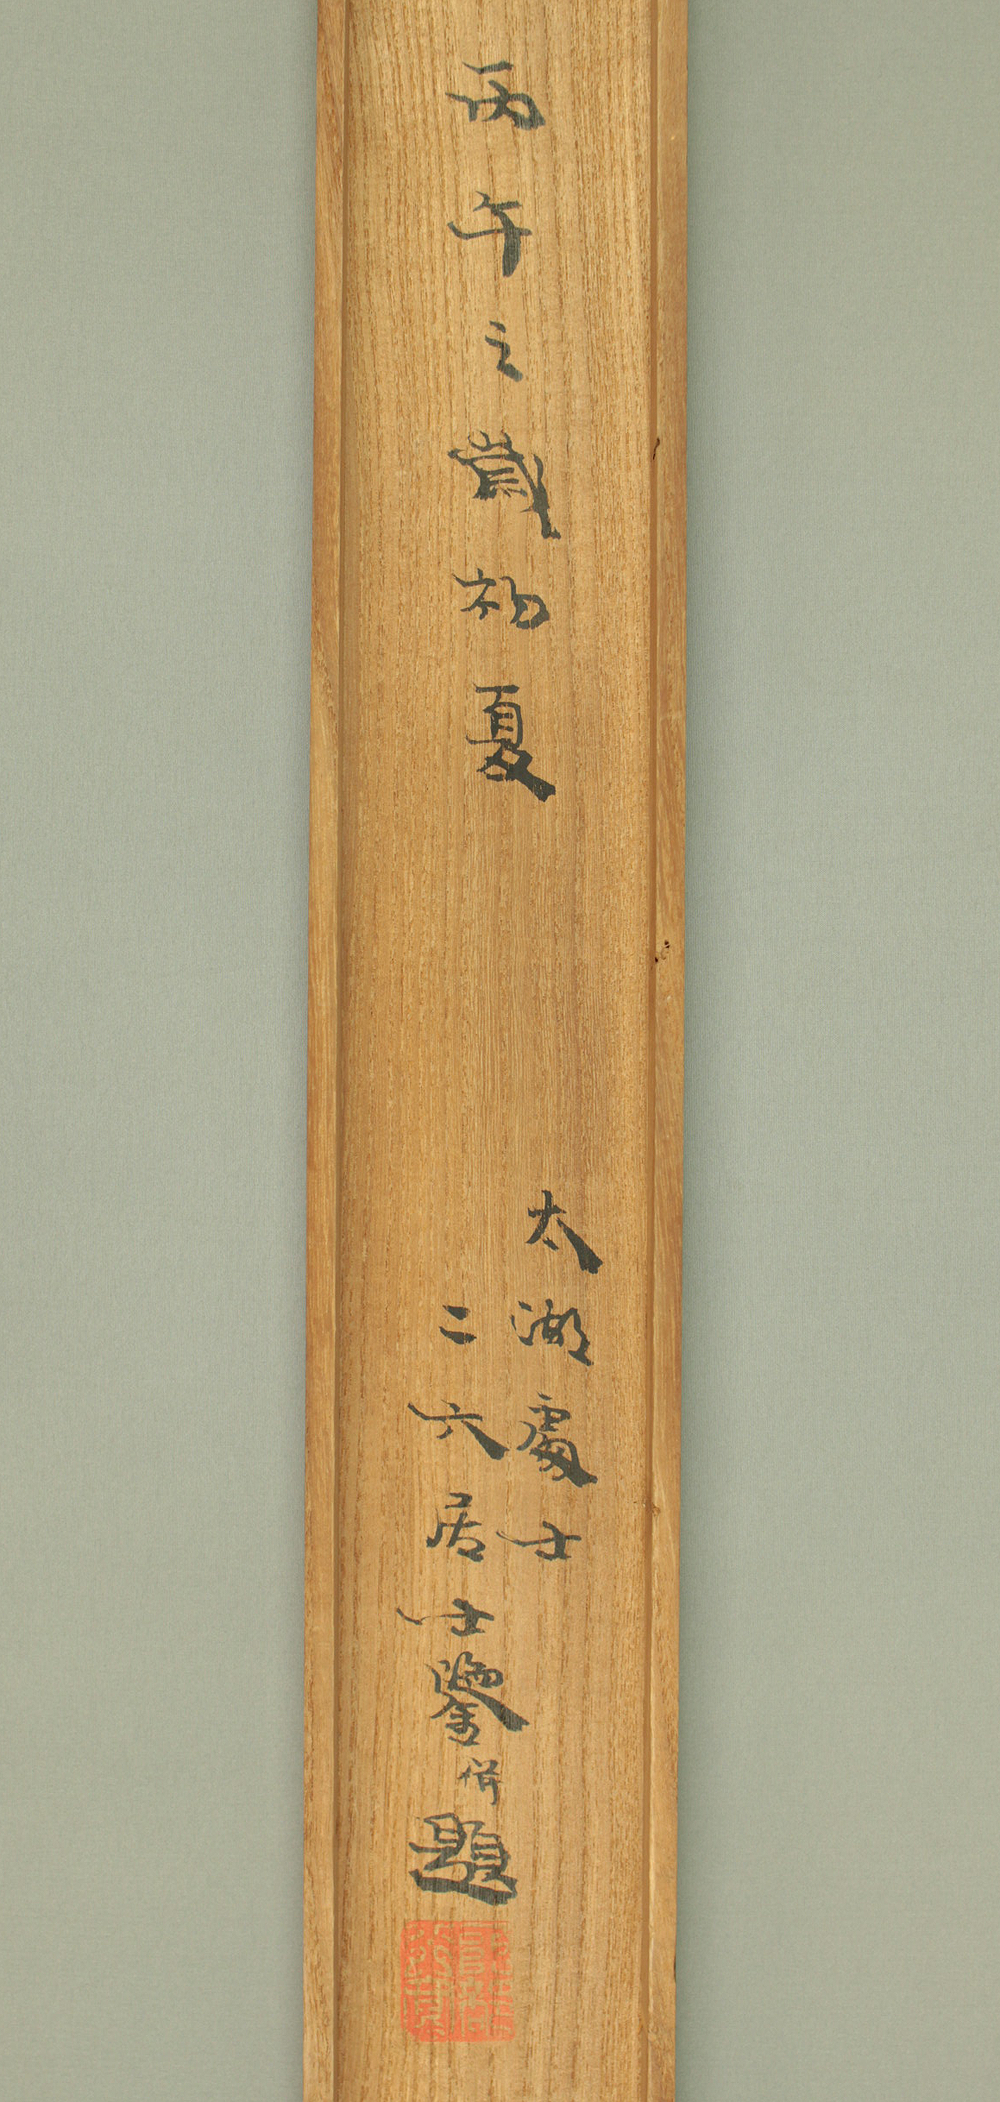 丙午之歳初夏
太湖處士
二六居士鑒併題